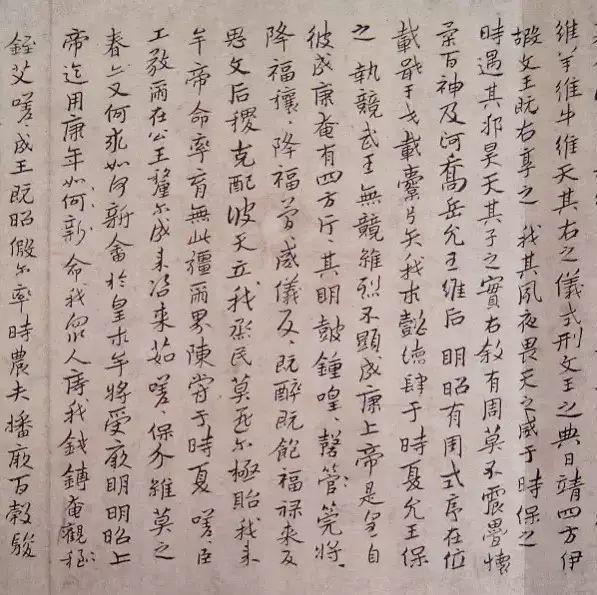 維羊維牛維天其右之儀式刑文王之典日靖四方伊
嘏文王既右享之我其夙夜畏天之威于時保之
時邁其邦昊天其子之實右敘有周莫不震疊懷
柔百神及河喬岳允王維后明昭有周式序在位
載戢干戈載櫜弓矢我求懿德肆于時夏允王保
之執競武王無競維烈不顯成康上帝是皇自
彼成康奄有四方斤〻其明鼓鍾喤〻磬管筦將〻
降福穰〻降福簡〻威儀反〻既醉既飽福祿來反
思文后稷克配彼天立我烝民莫匪尔極貽我來
牟帝命率育無此疆爾界陳常于時夏嗟〻臣
工敬爾在公王釐尔成來咨來茹嗟〻保介維莫之
春亦又何求如何新畬於皇來牟將受厥明明昭上
帝迄用康年如何新命我眾人庤我錢鎛奄觀
銍艾嗟〻成王既昭假尔率時農夫播厥百穀駿